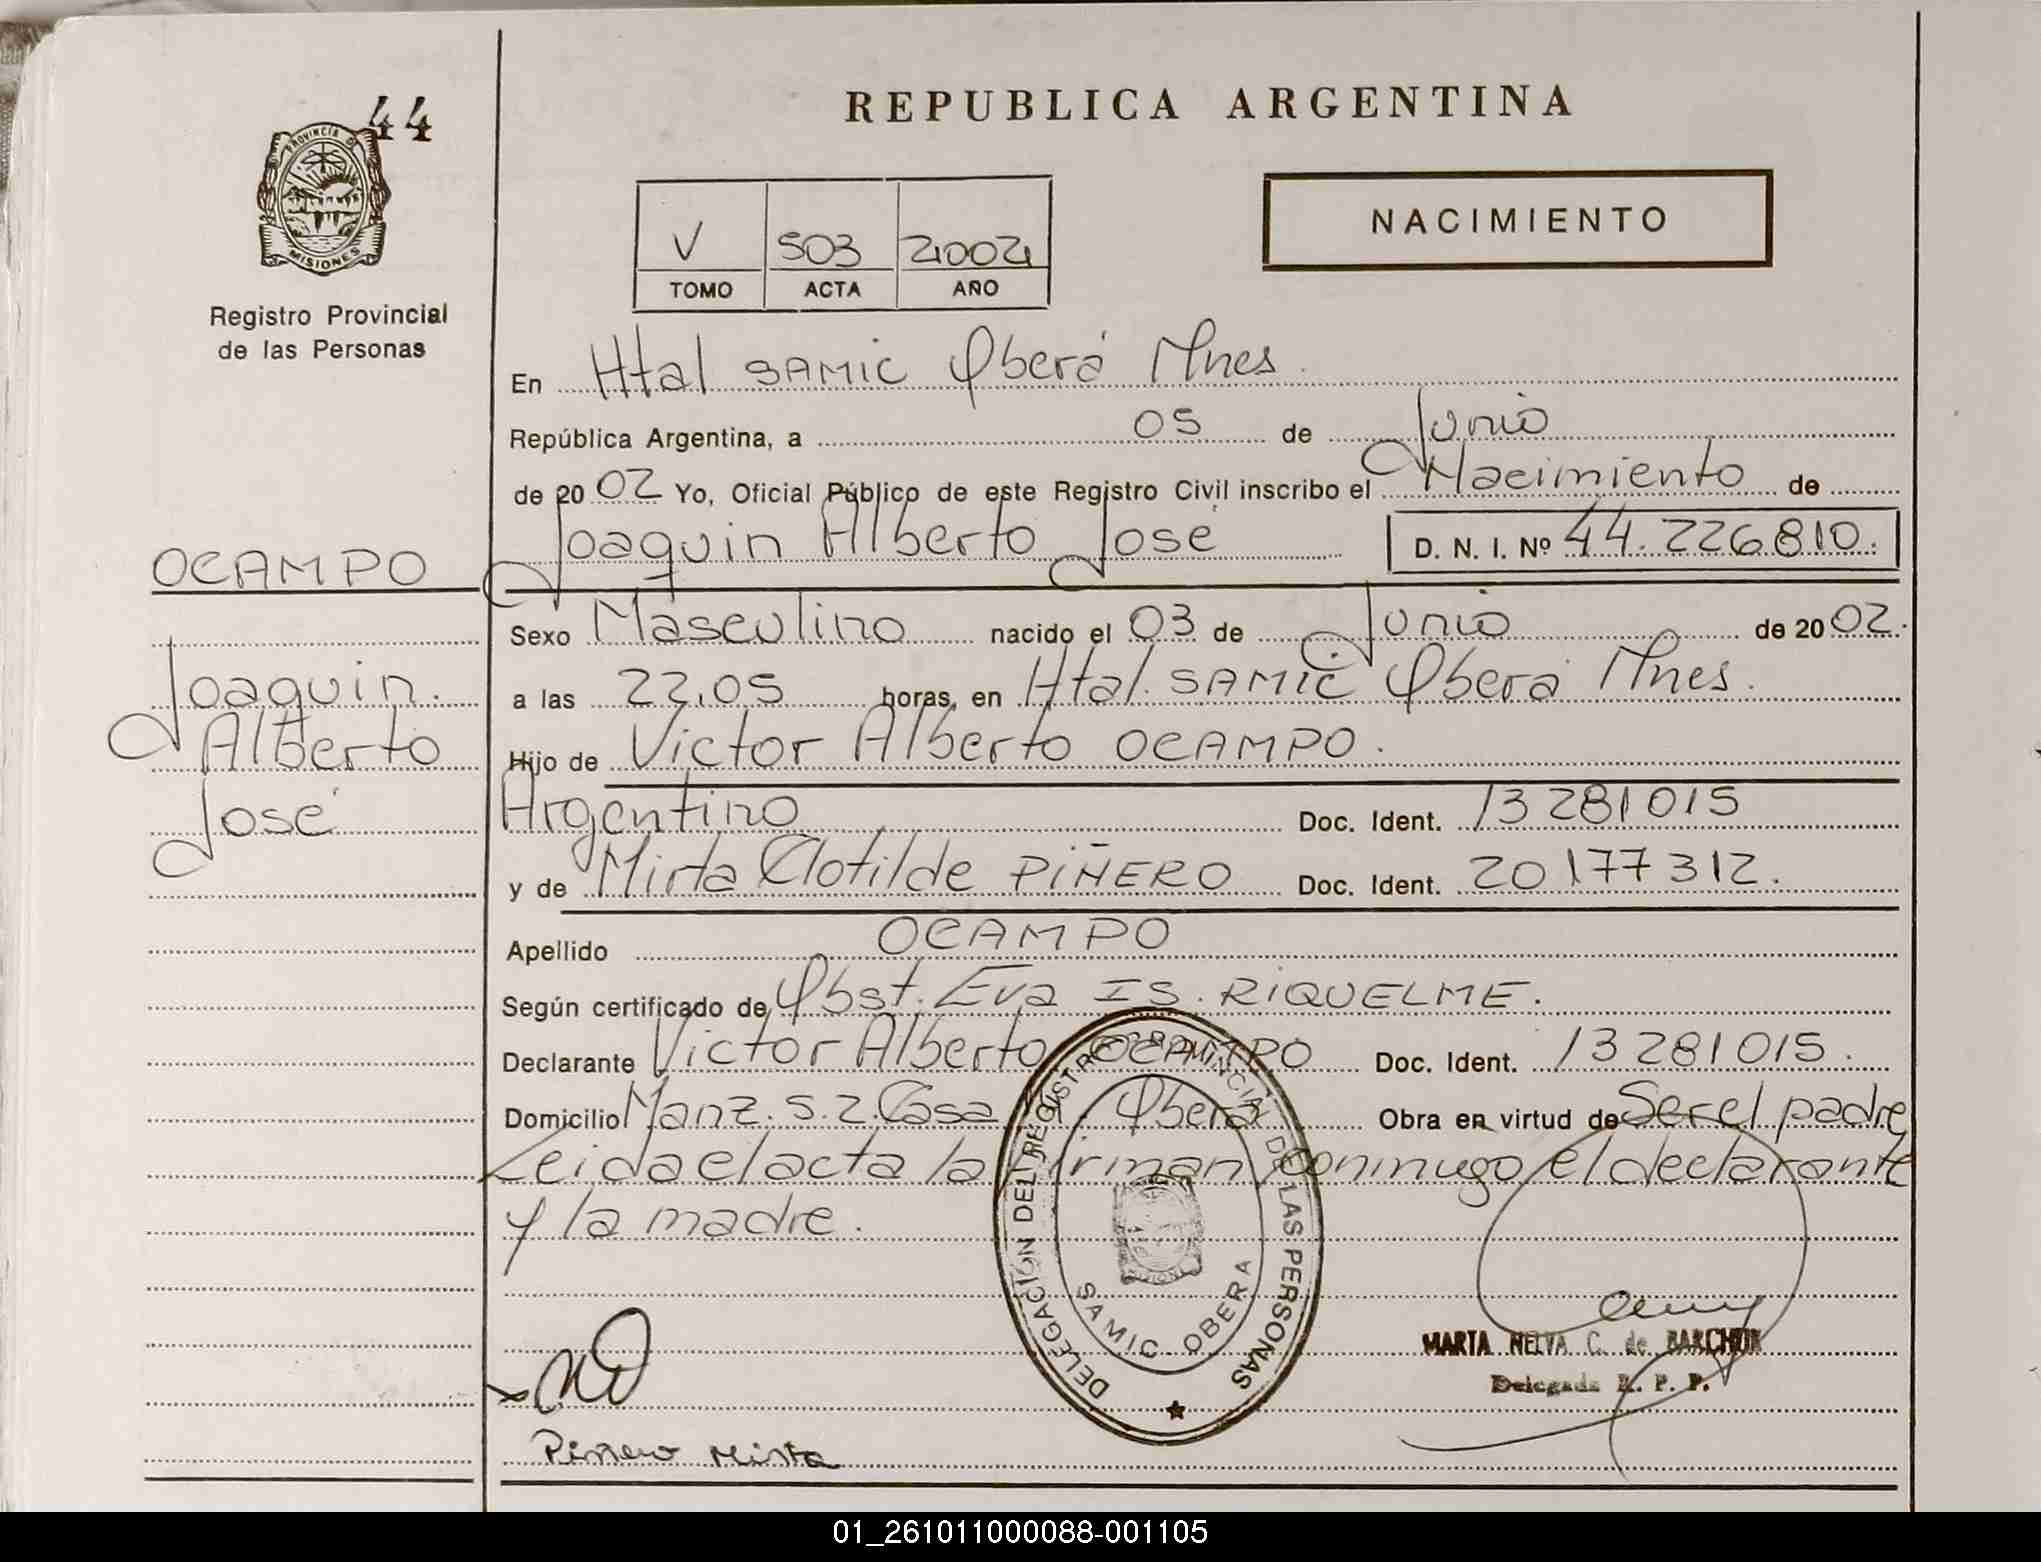 44
PROVINCIA DE
MISIONES
Registro Provincial
de las Personas
REPUBLICA ARGENTINA
V 503 2002
TOMO ACTA AÑO
NACIMIENTO
En Htal SAMIC Oberá Mnes.
República Argentina, a 05 de Junio
de 2002 Yo, Oficial Público de este Registro Civil inscribo el Nacimiento de
Joaquin Alberto José D. N. I. Nº 44.226.810.
OCAMPO
Joaquin.
Alberto
José
Sexo Masculino nacido el 03 de Junio de 2002.
a las 22,05 horas, en Htal. SAMIC Oberá Mnes.
Hijo de Victor Alberto OCAMPO.
Argentino Doc. Ident. 13281015
y de Mirta Clotilde PIÑERO Doc. Ident. 20177312.
Apellido OCAMPO
Según certificado de Obst. Eva IS. RIQUELME.
Declarante Victor Alberto OCAMPO Doc. Ident. 13281015.
Domicilio Manz. S. 2. Casa Oberá Obra en virtud de Ser el padre
Leida el acta la firman conmugo el declarante
y la madre.
DELEGACIÓN DEL REGISTRO PROVINCIAL DE LAS PERSONAS
SAMIC OBERA
MISIONES
MARTA NELVA C. de BARCHUK
Delegada R. P. P.
Piñero Mirta
01_261011000088-001105